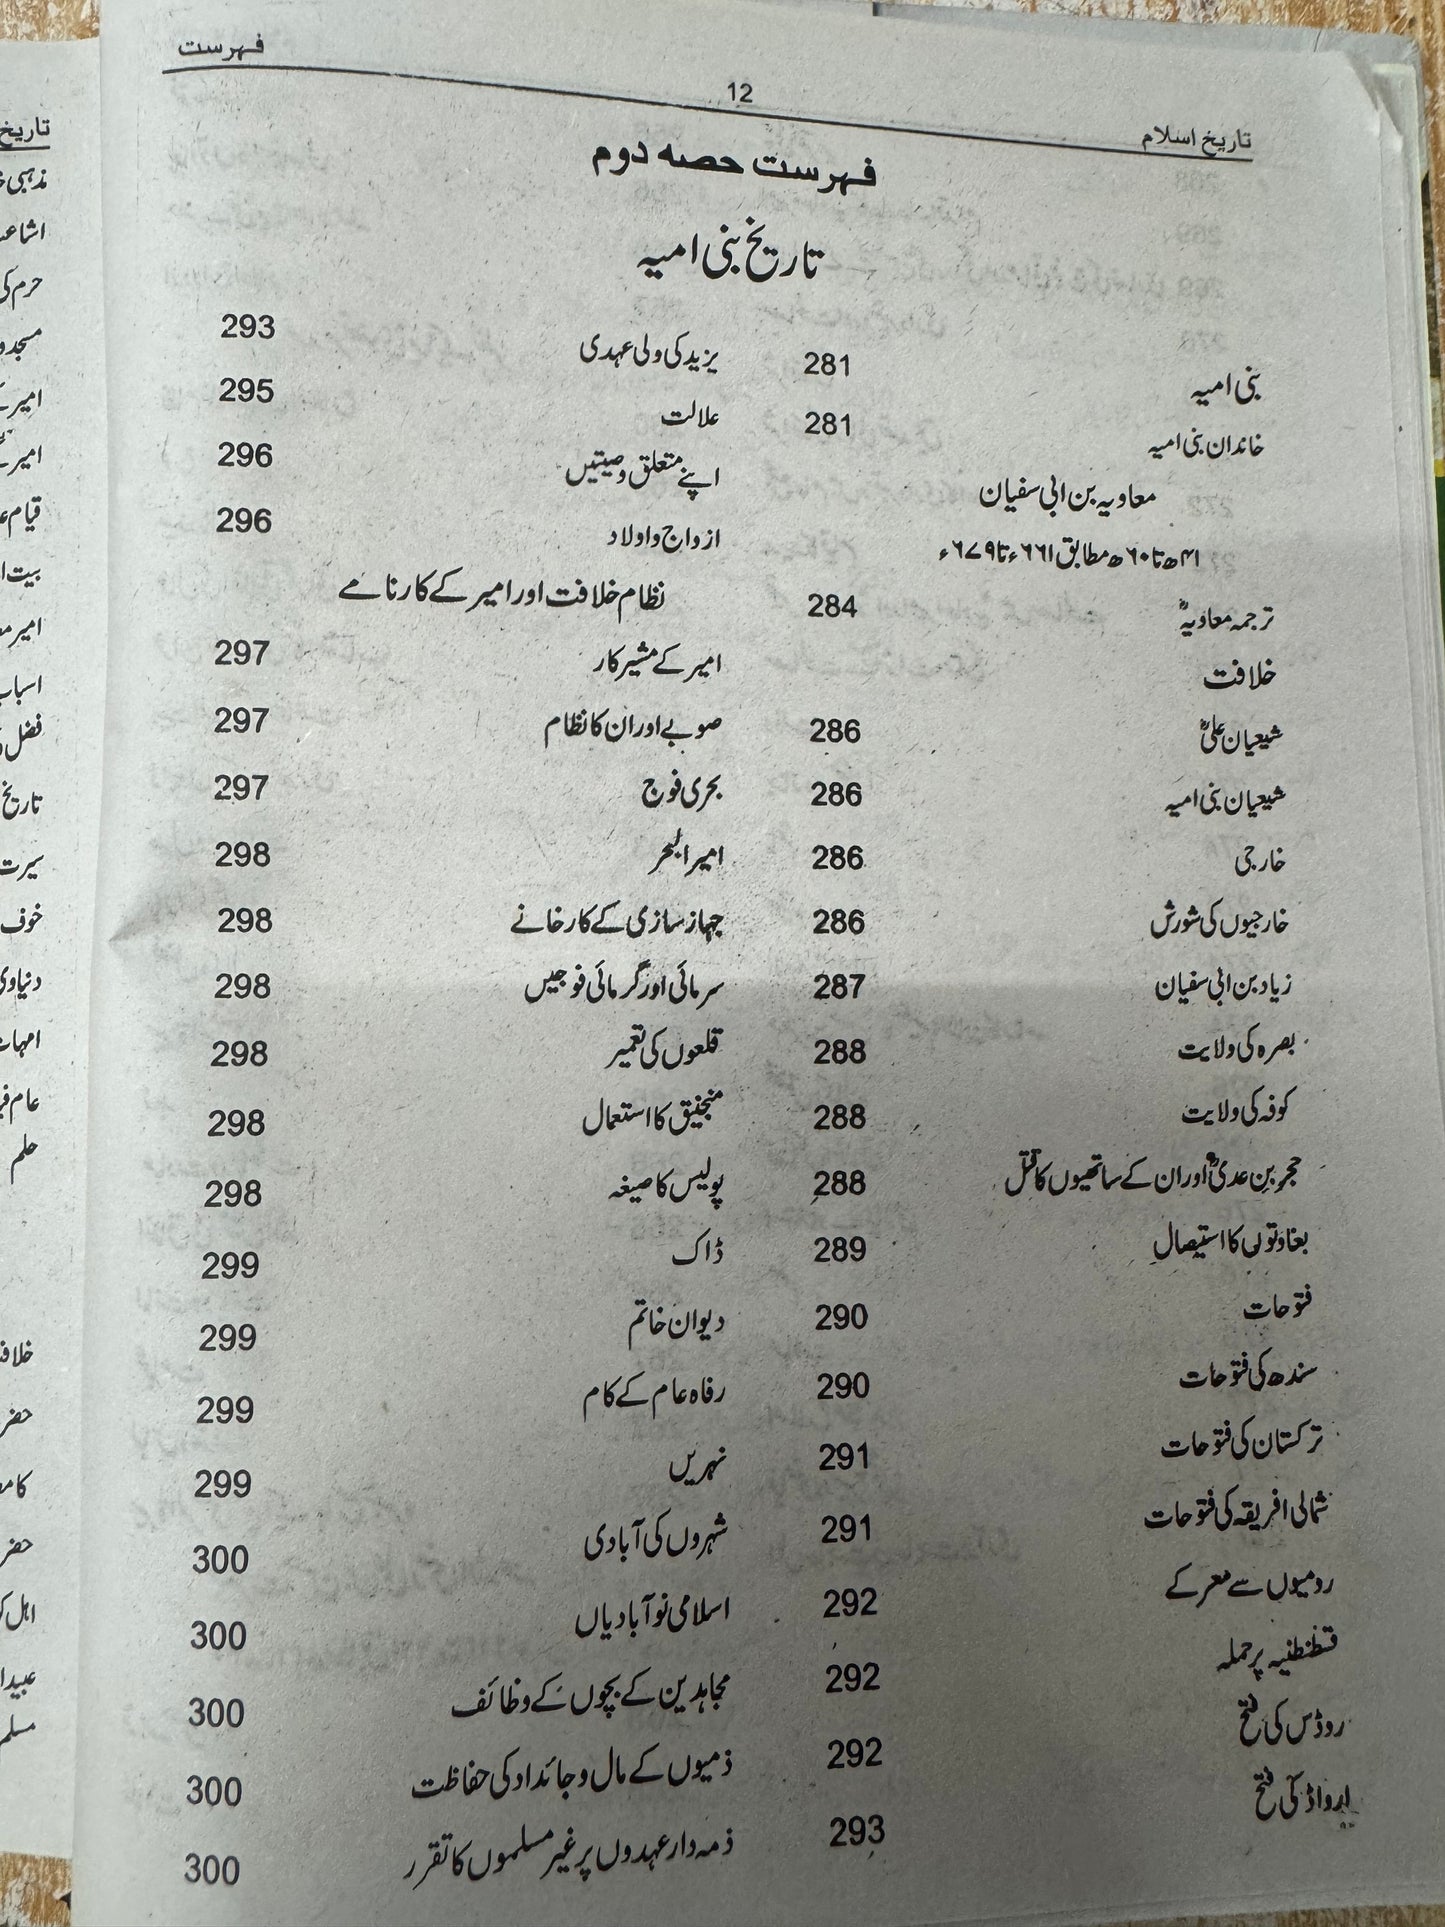 تاریخ اسلام
12
فہرست
فہرست حصہ دوم
تاریخ بنی امیہ
بنی امیہ 281
خاندان بنی امیہ 281
معاویہ بن ابی سفیان
۴۱ھ تا ۶۰ھ مطابق ۶۶۱ء تا ۶۷۹ء
ترجمہ معاویہؓ 284
خلافت
شیعیان علیؓ 286
شیعیان بنی امیہ 286
خارجی 286
خارجیوں کی شورش 286
زیاد بن ابی سفیان 287
بصرہ کی ولایت 288
کوفہ کی ولایت 288
حجر بن عدیؓ اور ان کے ساتھیوں کا قتل 288
بغاوتوں کا استیصال 289
فتوحات 290
سندھ کی فتوحات 290
ترکستان کی فتوحات 291
شمالی افریقہ کی فتوحات 291
رومیوں سے معرکے 292
قسطنطنیہ پر حملہ 292
روڈس کی فتح 292
ارواڈ کی فتح 293
یزید کی ولی عہدی 293
علالت 295
اپنے متعلق وصیتیں 296
ازواج و اولاد 296
نظام خلافت اور امیر کے کارنامے
امیر کے مشیر کار 297
صوبے اور ان کا نظام 297
بحری فوج 297
امیر البحر 298
جہاز سازی کے کارخانے 298
سرمائی اور گرمائی فوجیں 298
قلعوں کی تعمیر 298
منجنیق کا استعمال 298
پولیس کا صیغہ 298
ڈاک 299
دیوان خاتم 299
رفاہ عام کے کام 299
نہریں 299
شہروں کی آبادی 300
اسلامی نو آبادیاں 300
مجاہدین کے بچوں کے وظائف 300
ذمیوں کے مال و جائداد کی حفاظت 300
ذمہ دار عہدوں پر غیر مسلموں کا تقرر 300
تاریخ
مذہبی
حرم کی
قیام
تاریخ
سیرت
خوف
دنیاوی
عام
حلم
اہل